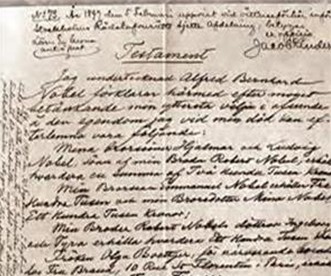 No 73. År 1897 den 5 Februari uppvist vid vittnesförhör inför
Stockholms Rådstufvurätts sjette Afdelning; betygar
Jacob
Testament
Jag undertecknad Alfred Bernhard
Nobel förklarar härmed efter moget
betänkande min yttersta vilja i afseende
å den egendom jag vid min död kan ef-
terlemna vara följande:
Mina Brorsöner Hjalmar och Ludvig
Nobel, söner af min Broder Robert Nobel, erhålla
hvardera en summa af Två Hundra Tusen Kronor;
Min Brorson Emmanuel Nobel erhåller Tre
Hundra Tusen och min Brorsdotter Mina Nobel
Ett Hundra Tusen Kronor;
Min Broder Robert Nobels döttrar Ingeborg
och Tyra erhålla hvardera Ett Hundra Tusen
Fröken Olga Boettger, för närvarande
10 Rue St Florentin, Paris,